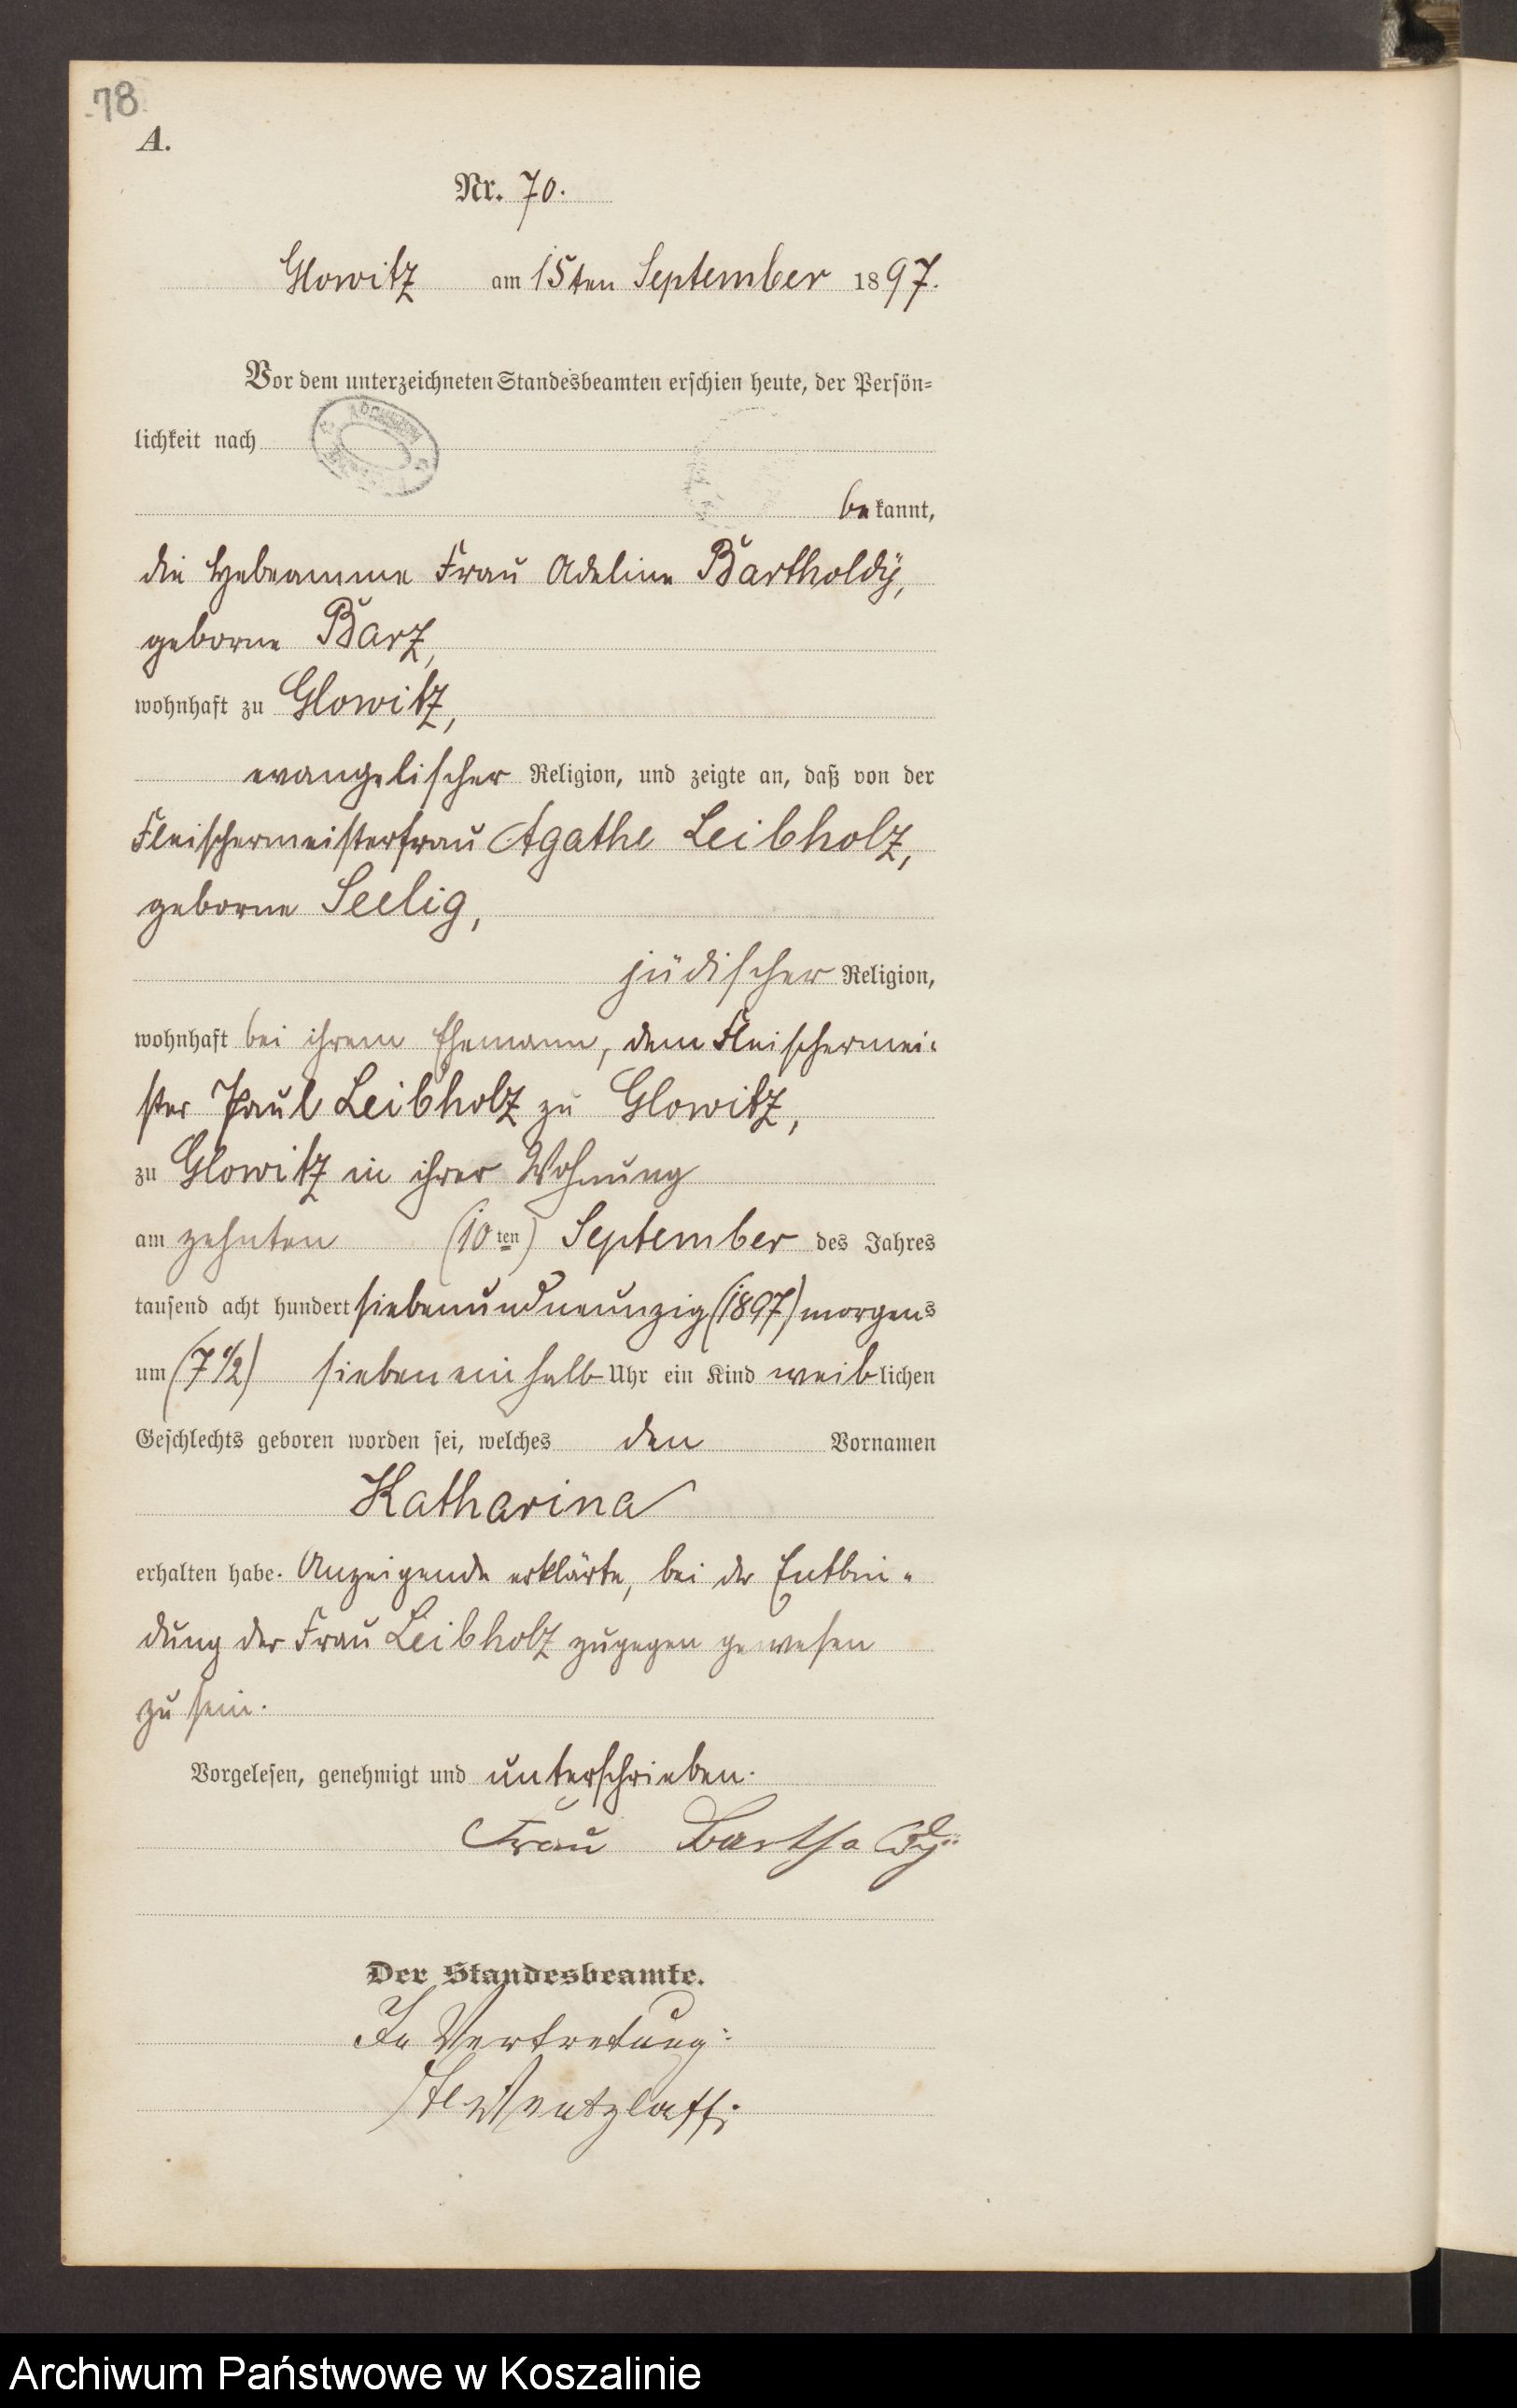 78
A.
Nr. 70.
Glowitz am 15ten September 1897.
Vor dem unterzeichneten Standesbeamten erschien heute, der Persön-
lichkeit nach
bekannt,
die Hebeamme Frau Adeline Bartholdÿ,
geborne Barz,
wohnhaft zu Glowitz,
evangelischer Religion, und zeigte an, daß von der
Fleischermeisterfrau Agathe Leibholz,
geborne Seelig,
jüdischer Religion,
wohnhaft bei ihrem Ehemann, dem Fleischermei-
ster Paul Leibholz zu Glowitz,
zu Glowitz in ihrer Wohnung
am zehnten (10ten) September des Jahres
tausend acht hundert siebenundneunzig (1897) morgens
um (7 1/2) siebeneinhalb Uhr ein Kind weiblichen
Geschlechts geboren worden sei, welches den Vornamen
Katharina
erhalten habe. Anzeigende erklärte, bei der Entbin-
dung der Frau Leibholz zugegen gewesen
zu sein.
Vorgelesen, genehmigt und unterschrieben.
Frau Bartholdÿ
Der Standesbeamte.
In Vertretung:
Wentzlaff.
Archiwum Państwowe w Koszalinie